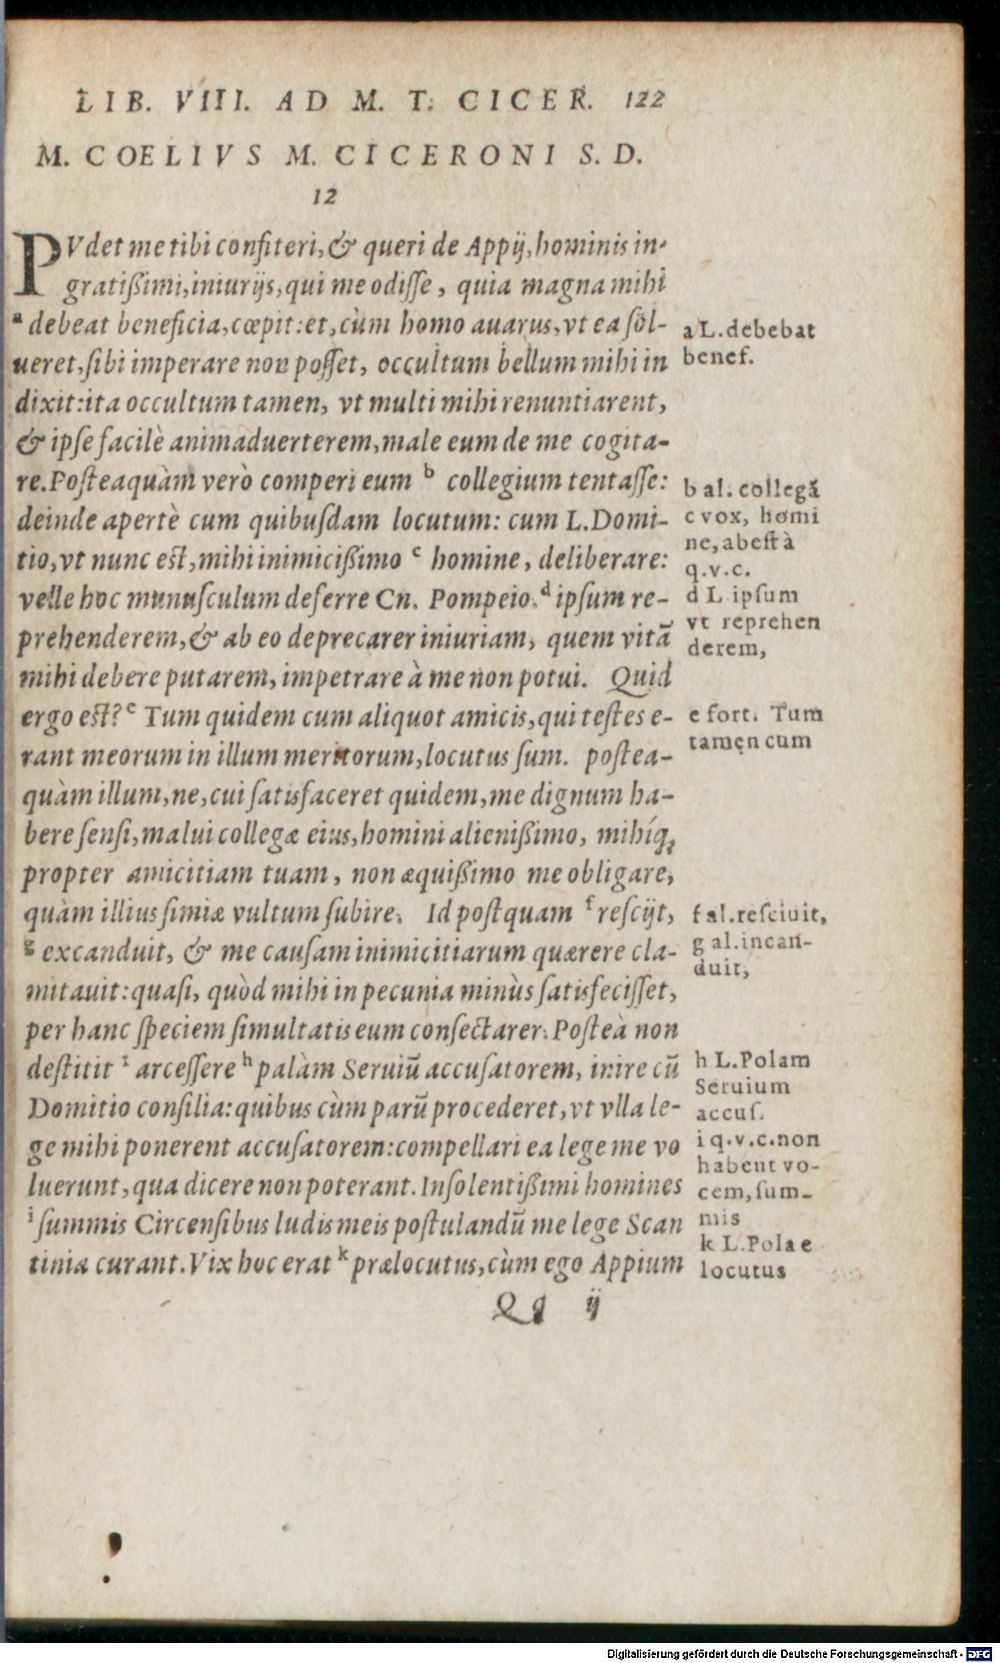 LIB. VIII. AD M. T. CICER. 122
M. COELIVS M. CICERONI S. D.
12
PVdet me tibi confiteri, & queri de Appij, hominis in-
gratißimi, iniurijs, qui me odisse, quia magna mihi
a debeat beneficia, cœpit: et, cùm homo auarus, vt ea sol-
ueret, sibi imperare non posset, occultum bellum mihi in
dixit: ita occultum tamen, vt multi mihi renuntiarent,
& ipse facilè animaduerterem, male eum de me cogita-
re. Posteaquàm verò comperi eum b collegium tentasse:
deinde apertè cum quibusdam locutum: cum L. Domi-
tio, vt nunc est, mihi inimicißimo c homine, deliberare:
velle hoc munusculum deferre Cn. Pompeio. d ipsum re-
prehenderem, & ab eo deprecarer iniuriam, quem vitā
mihi debere putarem, impetrare à me non potui. Quid
ergo est? e Tum quidem cum aliquot amicis, qui testes e-
rant meorum in illum meritorum, locutus sum. postea-
quàm illum, ne, cui satisfaceret quidem, me dignum ha-
bere sensi, malui collegæ eius, homini alienißimo, mihíq;
propter amicitiam tuam, non æquißimo me obligare,
quàm illius simiæ vultum subire. Id postquam f rescijt,
g excanduit, & me causam inimicitiarum quærere cla-
mitauit: quasi, quòd mihi in pecunia minùs satisfecisset,
per hanc speciem simultatis eum consectarer. Posteà non
destitit i arcessere h palàm Seruiū accusatorem, inire cū
Domitio consilia: quibus cùm parū procederet, vt vlla le-
ge mihi ponerent accusatorem: compellari ea lege me vo
luerunt, qua dicere non poterant. Insolentißimi homines
i summis Circensibus ludis meis postulandū me lege Scan
tinia curant. Vix hoc erat k prælocutus, cùm ego Appium
Qq ij
a L. debebat
benef.
b al. collegā
c vox, homi
ne, abest à
q. v. c.
d L ipsum
vt reprehen
derem,
e fort. Tum
tamen cum
f al. resciuit,
g al. incan-
duit,
h L. Polam
Seruium
accus.
i q. v. c. non
habent vo-
cem, sum-
mis
k L. Pola e
locutus
Digitalisierung gefördert durch die Deutsche Forschungsgemeinschaft - DFG